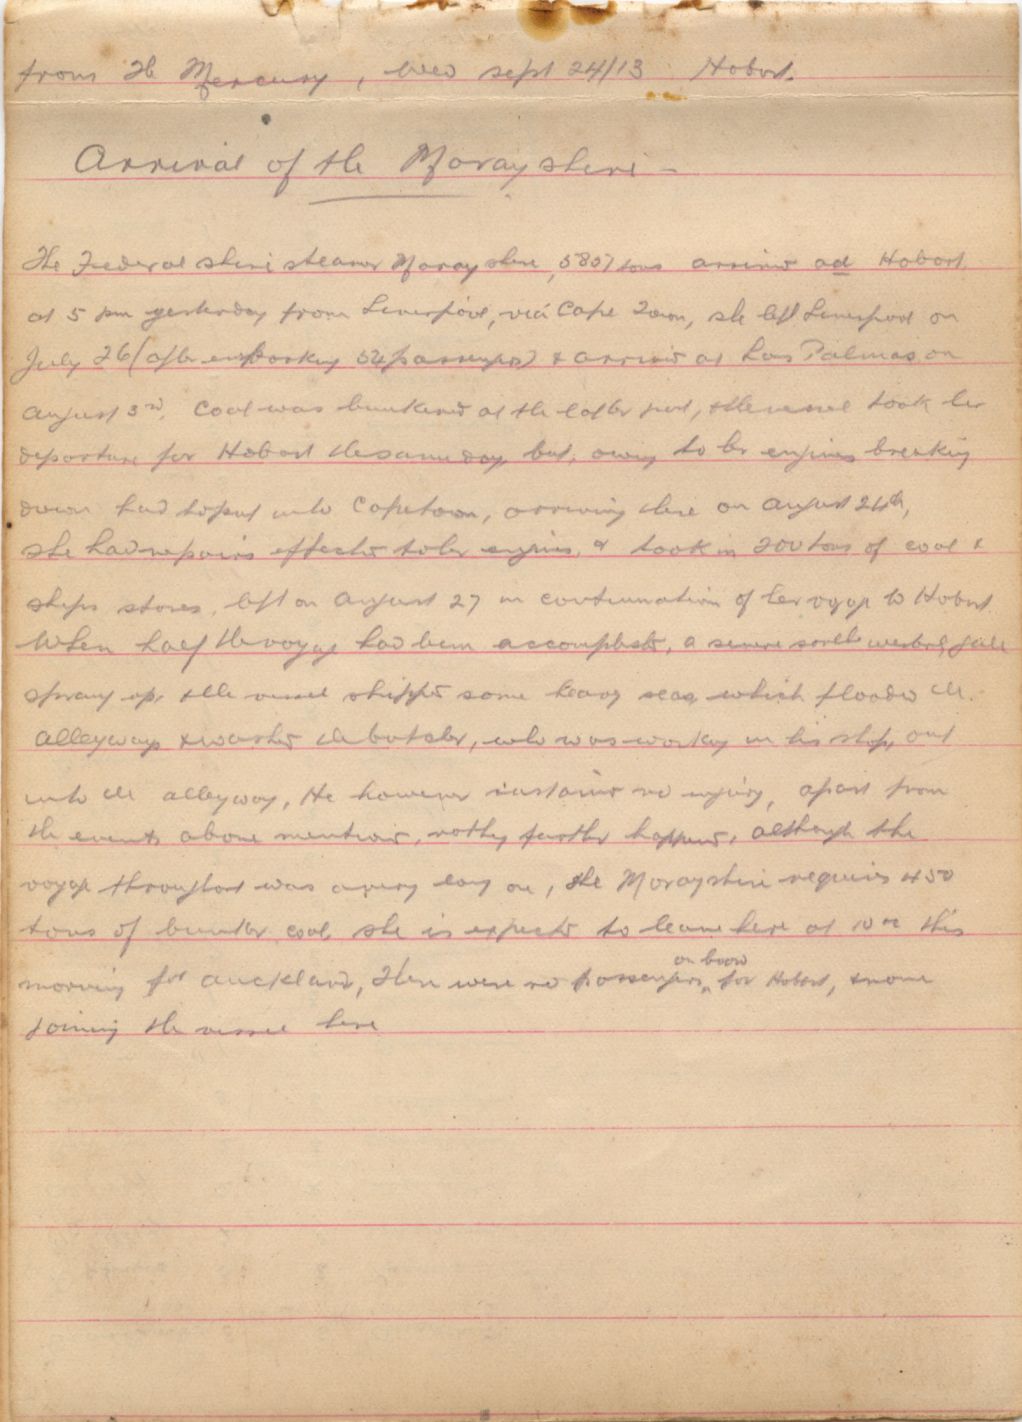 from The Mercury, Wed Sept 24/13 Hobart.
Arrival of the Morayshire -
The Federal shire steamer Morayshire, 5857 tons arrived ad Hobart.
at 5 pm yesterday from Liverpool, via Cape Town, she left Liverpool on
July 26 (after embarking 54 passengers) & arrived at Las Palmas on
August 3rd. Coal was bunkered at the latter port, & the vessel took her
departure for Hobart the same day, but, owing to her engines breaking
down had to put into Capetown, arriving there on August 24th,
she had repairs effected to her engines, & took in 200 tons of coal &
ships stores, left on August 27 in continuation of her voyage to Hobart.
When half the voyage had been accomplished, a severe south westerly gale
sprang up, & the vessel shipped some heavy seas, which flooded the
alleyways & washed the butcher, who was working in his shop, out
into the alleyway, He however sustained no injury, apart from
the events above mentioned, nothing further happened, although the
voyage throughout was a very long one, the Morayshire requires 450
tons of bunker coal she is expected to leave here at this
morning for Auckland, There were no passengers on board for Hobart, & none
joining the vessel here